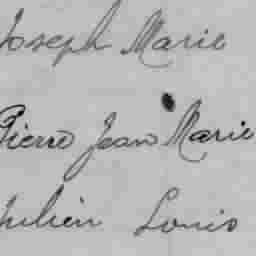 Joseph Marie
Pierre Jean Marie
Julien Louis